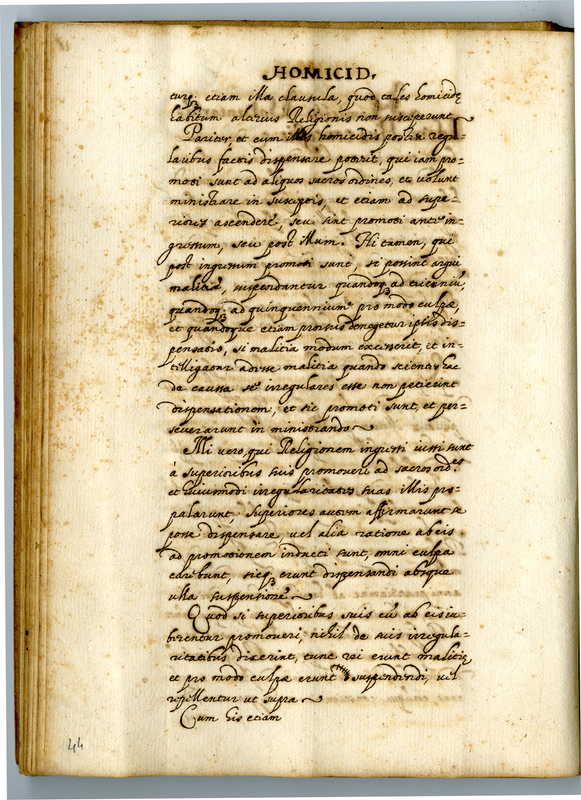 HOMICID.
tur, etiam illa clausula, quod tales homicidę
habitum alterius Religionis non susceperunt
Pariter et cum illis homicidis postea regu-
laribus factis dispensare poterit, qui iam pro-
moti sunt ad aliquos sacros ordines, et volunt
ministrare in susceptis, et etiam ad supe-
riores ascendere, seu sint promoti ante in-
gressum, seu post illum. Hi tamen, qui
post ingressum promoti sunt, si possint argui
malitiæ, suspendantur quandoq; ad trienniũ,
quandoq; ad quinquennium pro modo culpæ,
et quandoque etiam prorsus denegetur ipsis dis-
pensatio, si malitia modum excesserit, et in-
telligatur adesse malitia quando scientes hac
de caussa se irregulares esse non petierint
dispensationem, et sic promoti sunt, et per-
severarunt in ministrando
Illi vero, qui Religionem ingressi iussi sunt
à superioribus suis promoveri ad sacros ord.es
et huiusmodi irregularitates suas illis pro-
palarunt, superiores autem affirmarunt se
posse dispensare, vel alia ratione ab eis
ad promotionem inducti sunt, omni culpa
carebunt, sicq; erunt dispensandi absque
ulla suspensione
Quod si superioribus suis cũ ab eis iu-
berentur promoveri, nihil de suis irregula-
ritatibus dixerint, tunc rei erunt malitię
et pro modo culpæ erunt suspendendi, vel
repellentur ut supra
Cum his etiam
44